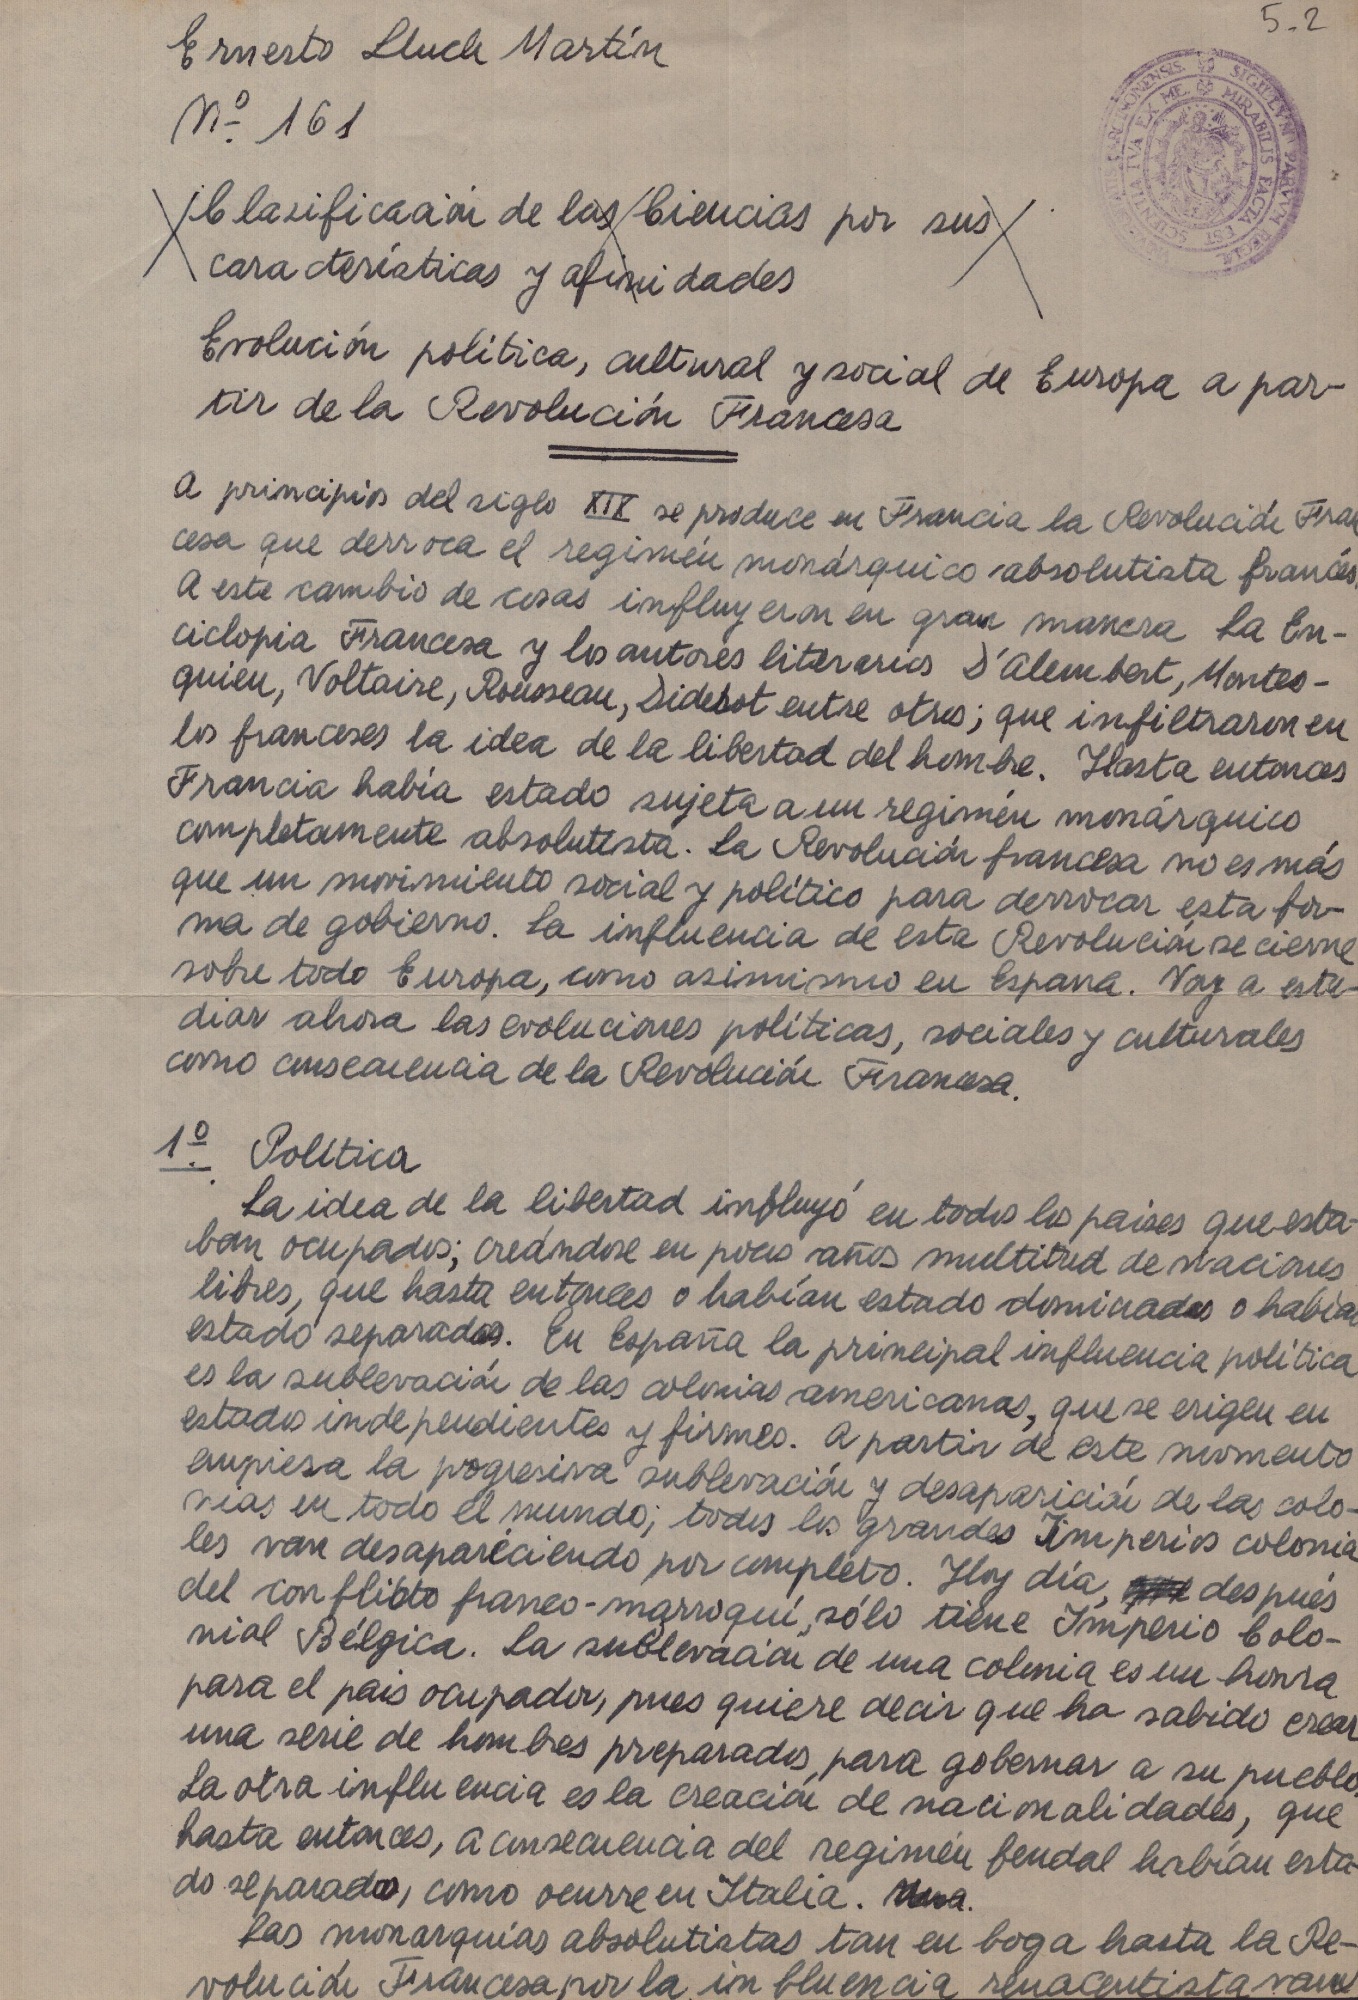 5-2
Ernesto Lluch Martín
Nº 161
SIGILLVM PARVVM REGIAE
MIRABILIS FACTA EST SCIENTIA TVA EX ME
Clasificación de las Ciencias por sus
características y afinidades
Evolución política, cultural y social de Europa a par-
tir de la Revolución Francesa
A principios del siglo XIX se produce en Francia la Revolución Fran
cesa que derroca el regimén monárquico absolutista francés.
A este cambio de cosas influyeron en gran manera la En-
ciclopia Francesa y los autores literarios D'Alembert, Montes-
quieu, Voltaire, Rousseau, Diderot entre otros; que infiltraron en
los franceses la idea de la libertad del hombre. Hasta entonces
Francia había estado sujeta a un regimén monárquico
completamente absolutista. La Revolución francesa no es más
que un movimiento social y político para derrocar esta for-
ma de gobierno. La influencia de esta Revolución se cierne
sobre todo Europa, como asimismo en España. Voy a estu-
diar ahora las evoluciones políticas, sociales y culturales
como consecuencia de la Revolución Francesa.
1º. Política
La idea de la libertad influyó en todos los países que esta-
ban ocupados; creándose en pocos años multitud de naciones
libres, que hasta entonces o habían estado dominados o habían
estado separados. En España la principal influencia política
es la sublevación de las colonias americanas, que se erigen en
estados independientes y firmes. A partir de este momento
empieza la progresiva sublevación y desaparición de las colo-
nias en todo el mundo; todos los grandes Imperios colonia
les van desapareciendo por completo. Hoy día, después
del conflicto franco-marroquí, sólo tiene Imperio Colo-
nial Bélgica. La sublevación de una colonia es un honra
para el pais ocupador, pues quiere decir que ha sabido crear
una serie de hombres preparados, para gobernar a su pueblo.
La otra influencia es la creación de nacionalidades, que
hasta entonces, a consecuencia del regimén feudal habían esta-
do separados, como ocurre en Italia.
Las monarquías absolutistas tan en boga hasta la Re-
volución Francesa por la influencia renacentista van